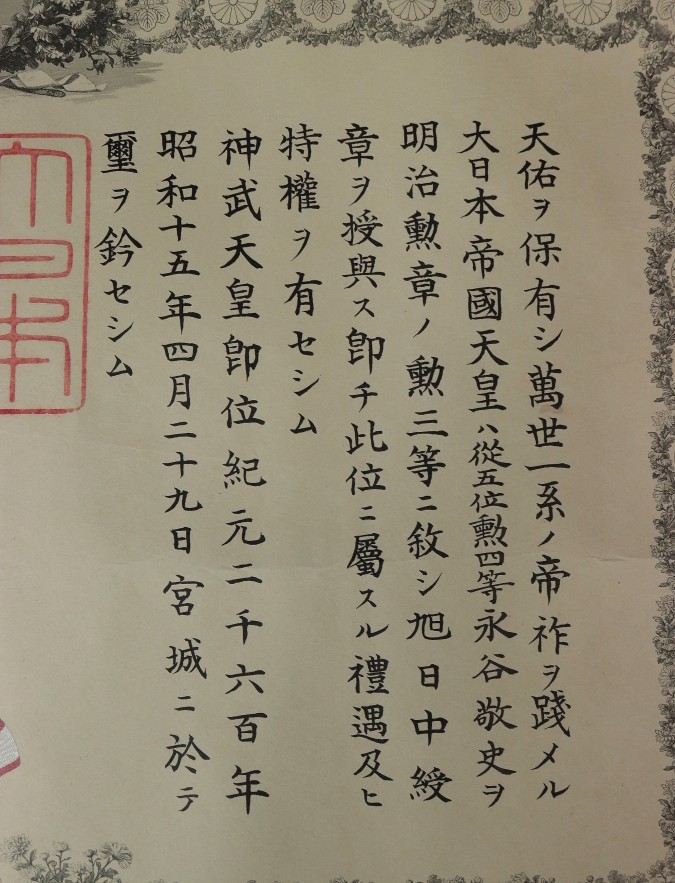 天佑ヲ保有シ萬世一系ノ帝祚ヲ踐メル
大日本帝國天皇ハ從五位勲四等永谷敬史ヲ
明治勲章ノ勲三等ニ敘シ旭日中綬
章ヲ授與ス卽チ此位ニ屬スル禮遇及ヒ
特權ヲ有セシム
神武天皇卽位紀元二千六百年
昭和十五年四月二十九日宮城ニ於テ
璽ヲ鈐セシム